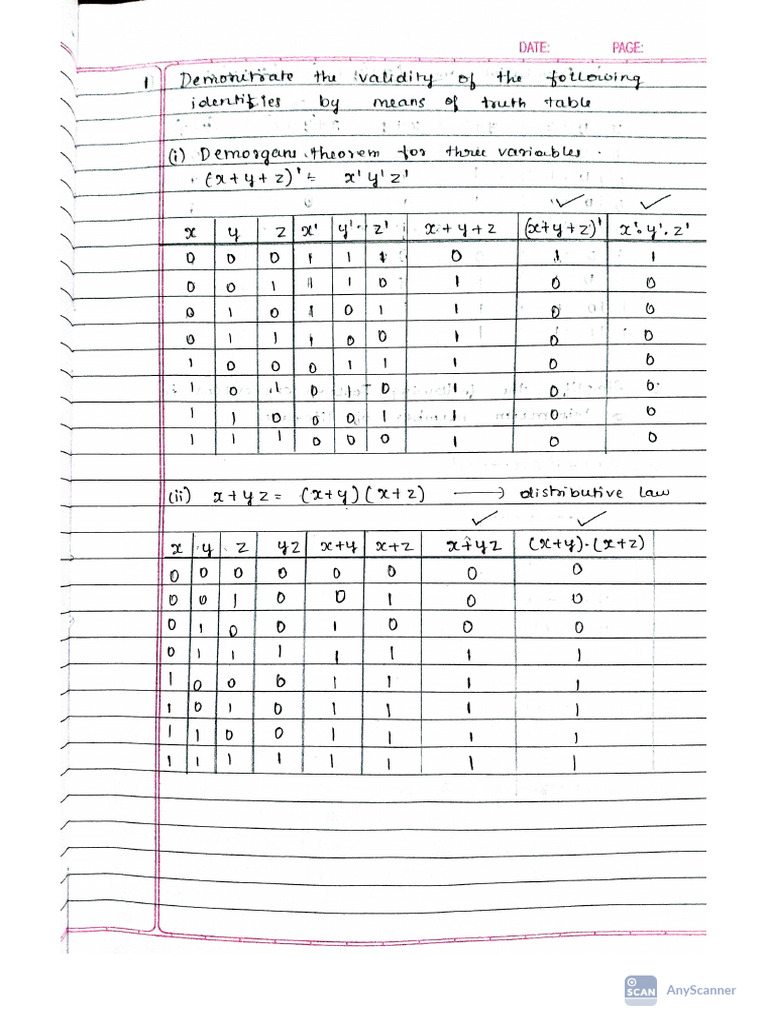 DATE: PAGE:
1 Demonitrate the validity of the following
identifies by means of truth table
(i) Demorgans theorem for three variables.
(x+y+z)' = x'y'z'
x y z x' y' z' x+y+z (x+y+z)' x'.y'.z'
0 0 0 1 1 1 0 1 1
0 0 1 1 1 0 1 0 0
0 1 0 1 0 1 1 0 0
0 1 1 1 0 0 1 0 0
1 0 0 0 1 1 1 0 0
1 0 1 0 1 0 1 0 0
1 1 0 0 0 1 1 0 0
1 1 1 0 0 0 1 0 0
(ii) x+yz = (x+y)(x+z) → distributive law
x y z yz x+y x+z x+yz (x+y).(x+z)
0 0 0 0 0 0 0 0
0 0 1 0 0 1 0 0
0 1 0 0 1 0 0 0
0 1 1 1 1 1 1 1
1 0 0 0 1 1 1 1
1 0 1 0 1 1 1 1
1 1 0 0 1 1 1 1
1 1 1 1 1 1 1 1
SCAN AnyScanner